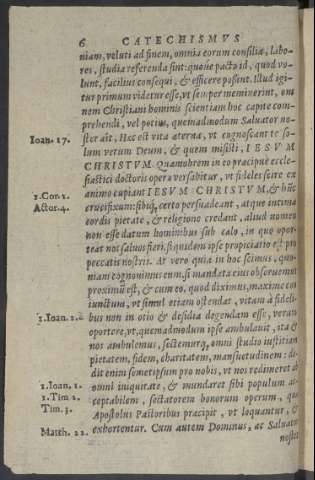 6 CATECHISMVS
niam, veluti ad finem, omnia eorum consilia, labo-
res, studia referenda sint: quo nè pacto id, quod vo-
lunt, facilius consequi, & efficere possint. Illud igi-
tur primum videtur esse, vt semper meminerint, om
nem Christiani hominis scientiam hoc capite com-
prehendi, vel potius, quemadmodum Saluator no-
Ioan. 17. ster ait, Hæc est vita æterna, vt cognoscant te so-
lum verum Deum, & quem misisti, IESVM
CHRISTVM. Quamobrem in eo præcipuè eccle-
siastici doctoris opera versabitur, vt fideles scire ex
1. Cor. 2. animo cupiant IESVM CHRISTVM, & hũc
Actor. 4. crucifixum: sibiq́; certo persuadeant, atque intima
cordis pietate, & religione credant, aliud nomen
non esse datum hominibus sub cælo, in quo opor-
teat nos saluos fieri. siquidem ipse propiciatio est pro
peccatis nostris. At verò quia in hoc scimus, quo-
niam cognouimus eum, si mandata eius obseruemus
proximũ est, & cum eo, quod diximus, maximè con
iunctum, vt simul etiam ostendat, vitam à fideli-
1. Ioan. 2. bus non in otio & desidia degendam esse, verùm
oportere, vt, quemadmodum ipse ambulauit, ita &
nos ambulemus, sectemurq́;, omni studio iustitiam
pietatem, fidem, charitatem, mansuetudinem: de-
dit enim semetipsum pro nobis, vt nos redimeret ab
1. Ioan. 1. omni iniquitate, & mundaret sibi populum ac-
1. Tim. 2. ceptabilem, sectatorem bonorum operum, quæ
Tim. 3. Apostolus Pastoribus præcipit, vt loquantur, &
Matth. 22. exhortentur. Cum autem Dominus, ac Saluator
noster